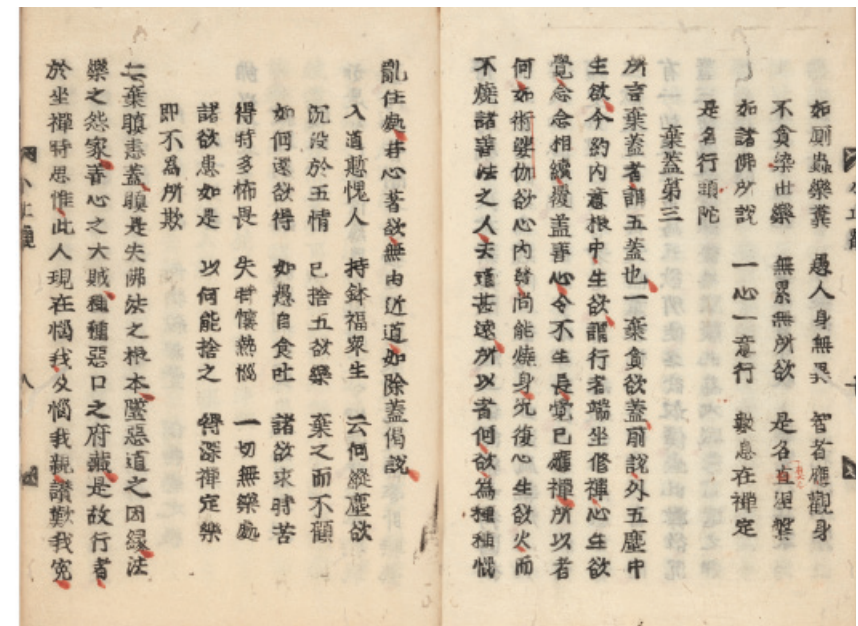 如厠蟲樂糞 愚人身無異 智者應觀身
不貪染世樂 無累無所欲 是名直涅槃
如諸佛所說 一心一意行 數息在禪定
是名行頭陀
棄蓋第三
所言棄蓋者謂五蓋也一棄貪欲蓋前說外五塵中
生欲今約內意根中生欲謂行者端坐修禪心生欲
覺念念相續覆蓋善心令不生長覺已應禪所以者
何如術婆伽欲心內發尚能燒身况復心生欲火而
不燒諸善法之人去道甚遠所以者何欲為種種惱
亂住處若心著欲無由近道如除蓋偈說
入道慙愧人 持鉢福衆生 云何縱塵欲
沉没於五情 已捨五欲樂 棄之而不顧
如何還欲得 如愚自食吐 諸欲求時苦
得時多怖畏 失時懷熱惱 一切無樂處
諸欲患如是 以何能捨之 得深禪定樂
即不為所欺
二棄瞋恚蓋瞋是失佛法之根本墜惡道之因緣法
樂之怨家善心之大賊種種惡口之府藏是故行者
於坐禪時思惟此人現在惱我及惱我親讃歎我寃
小止觀
八